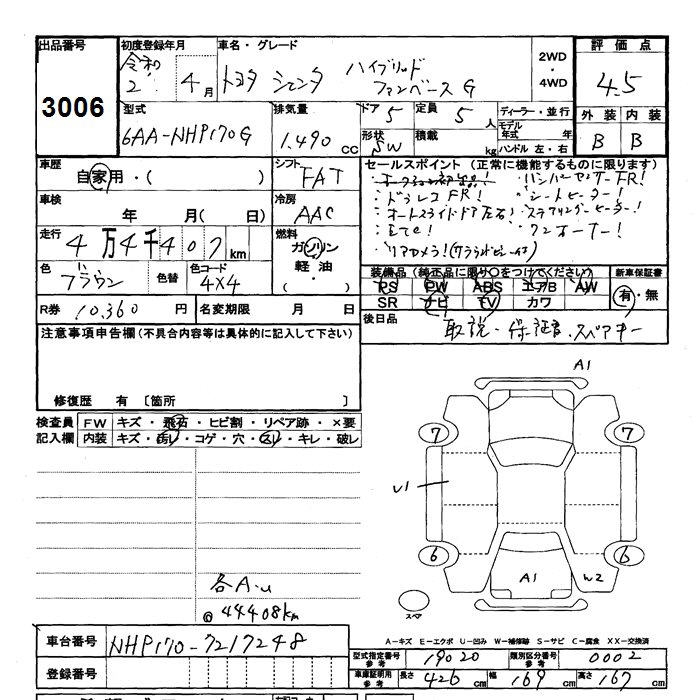 出品番号 3006
初度登録年月 令和 2 4月
車名・グレード トヨタ シエンタ ハイブリッド ファンベースG
2WD・4WD
評価点 4.5
外装 内装
B B
型式 6AA-NHP170G
排気量 1.490 cc
ドア 5 定員 5 人
形状 SW 積載 kg
ディーラー・並行
モデル年式 年
ハンドル 左・右
車歴 自家用・( )
シフト FAT
車検 年 月( 日)
冷房 AAC
走行 4万4千407km
燃料 ガソリン 軽油・( )
色 ブラウン 色替 色コード 4X4
R券 10.360 円 名変期限 月 日
セールスポイント(正常に機能するものに限ります)
:ドラレコFR!
:オートスライドドア左右!
:ETC!
:リアカメラ!
:シートヒーター!
:ステアリングヒーター!
:ワンオーナー!
装備品(純正品に限り○をつけてください) 新車保証書
PS PW ABS エアB AW
SR ナビ TV カワ
有・無
後日品 取説・保証書・スペアキー
注意事項申告欄(不具合内容等は具体的に記入して下さい)
修復歴 有〔箇所 〕
検査員記入欄 FW キズ・飛石・ヒビ割・リペア跡・×要
内装 キズ・汚レ・コゲ・穴・スレ・キレ・破レ
各A.u
@44408km
A1
7 7
U1
6 6
A1 W2
スペア
A-キズ E-エクボ U-凹み W-補修跡 S-サビ C-腐食 XX-交換済
車台番号 NHP170-7217248
登録番号
型式指定番号 参考 19020 類別区分番号 参考 0002
車庫証明用 参考 長さ 426 cm 幅 169 cm 高さ 167 cm